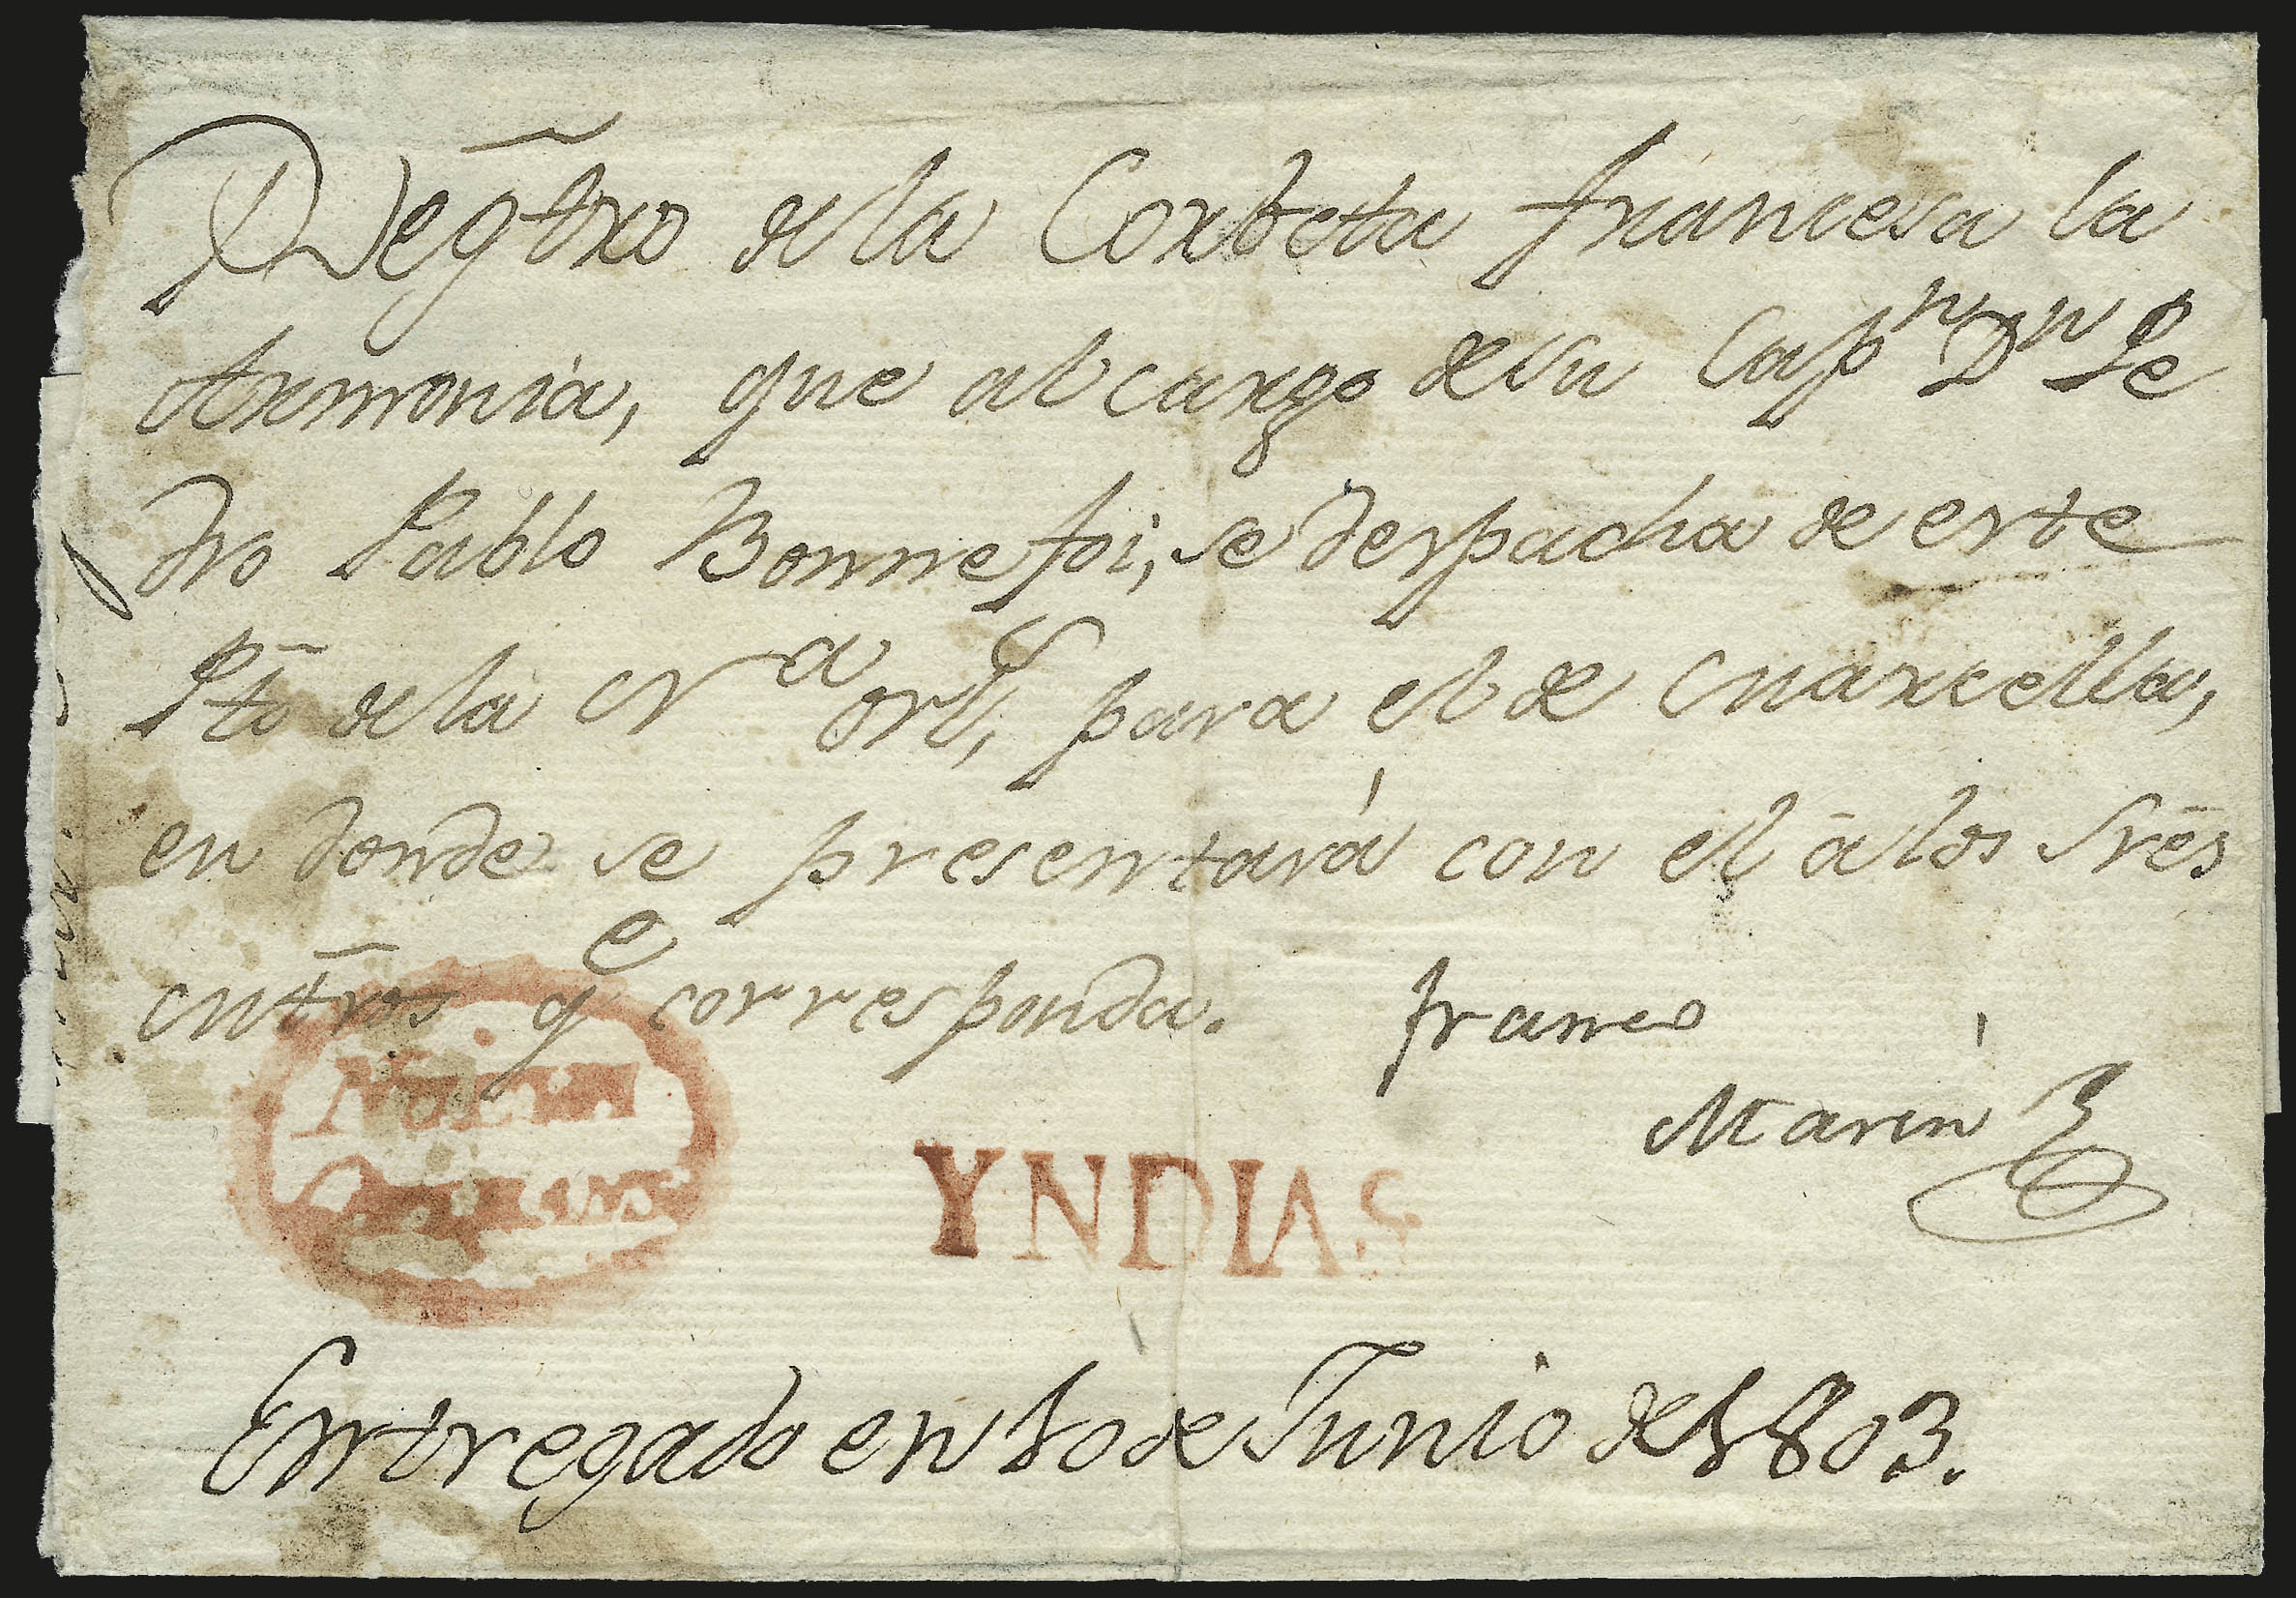 Regt̃ro de la Corbeta francesa la
Armonia, que al cargo de su Capn Dn Pe
dro Pablo Bonnefoi, se despacha de este
Pt̃o de la Na Orls, para el de Marcella,
en donde se presentará con el á los Sres̃
Mt̃ros qe corresponda. franco
Marin
NUEVA
ORLEANS
YNDIAS
Entregado en 10 de Junio de 1803.